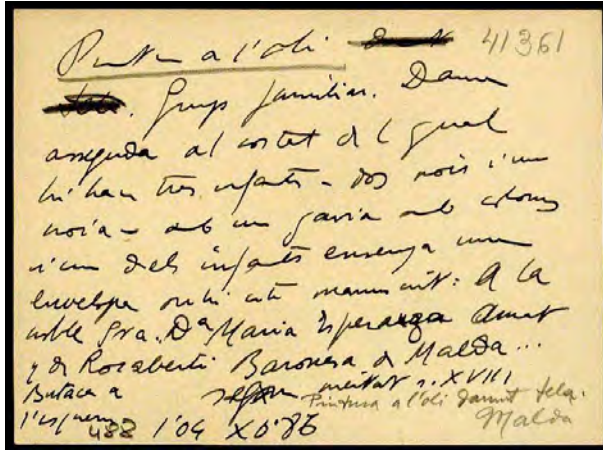 Pintura a l'oli 41361
Grup familiar. Dama
asseguda al costat de l qual
hi han tres infants - dos nois i una
noia - amb un gavia amb coloms
i un dels infants ensenya una
envelope on hi està manuscrit: A la
noble Sra. Dª Maria Esperanza Amat
y de Rocaberti Baronesa de Maldà...
Butaca a segon meitat s. XVIII
l'esquerra Pintura a l'oli damunt tela.
488 1'04 X 0'86 Maldà